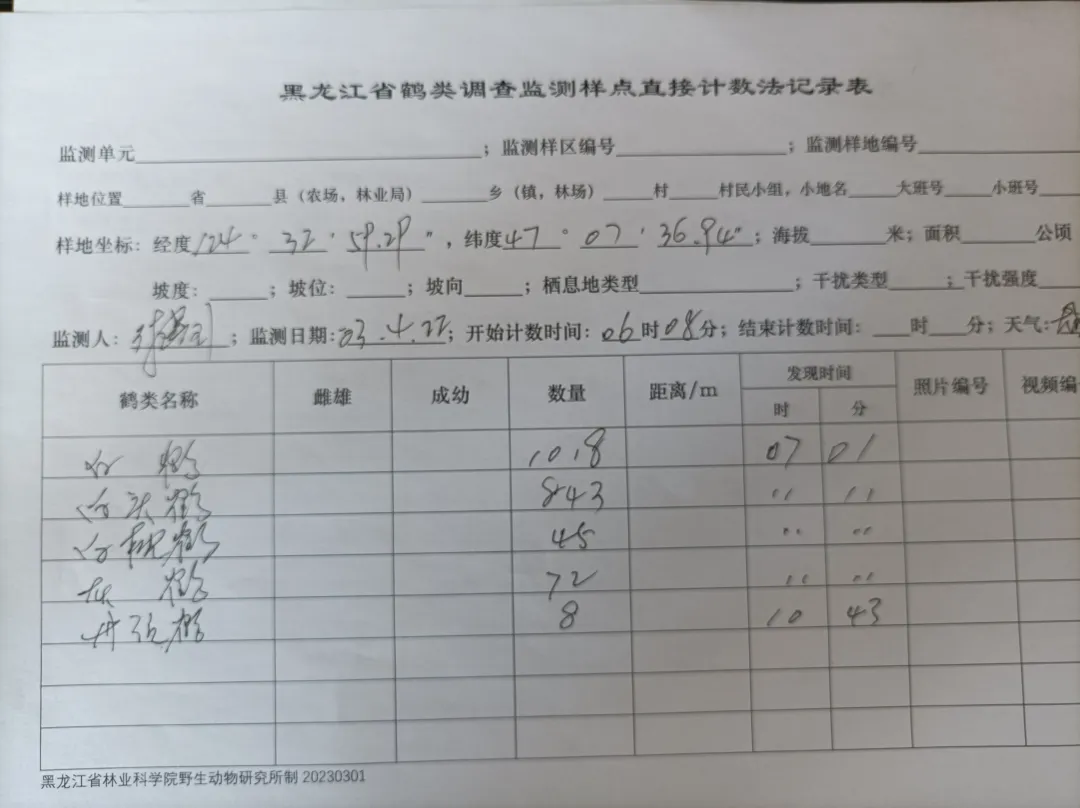 黑龙江省鹤类调查监测样点直接计数法记录表
监测单元____；监测样区编号____；监测样地编号____
样地位置____省____县（农场，林业局）____乡（镇，林场）____村____村民小组，小地名____大班号____小班号____
样地坐标：经度124°32′59.29″，纬度47°07′36.94″；海拔____米；面积____公顷
坡度：____；坡位：____；坡向____；栖息地类型____；干扰类型____；干扰强度____
监测人：；监测日期：03.4.22；开始计数时间：06时08分；结束计数时间：____时____分；天气：
鹤类名称 雌雄 成幼 数量 距离/m 发现时间 时 分 照片编号 视频编
白鹤 1018 07 01
白头鹤 843 〃 〃
白枕鹤 45 〃 〃
灰鹤 72 〃 〃
丹顶鹤 8 10 43
黑龙江省林业科学院野生动物研究所制 20230301